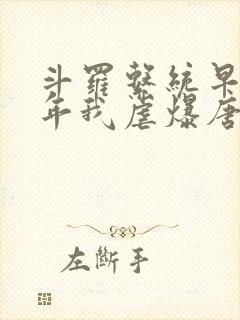 斗羅繫統早
年我虐爆唐
左斷手